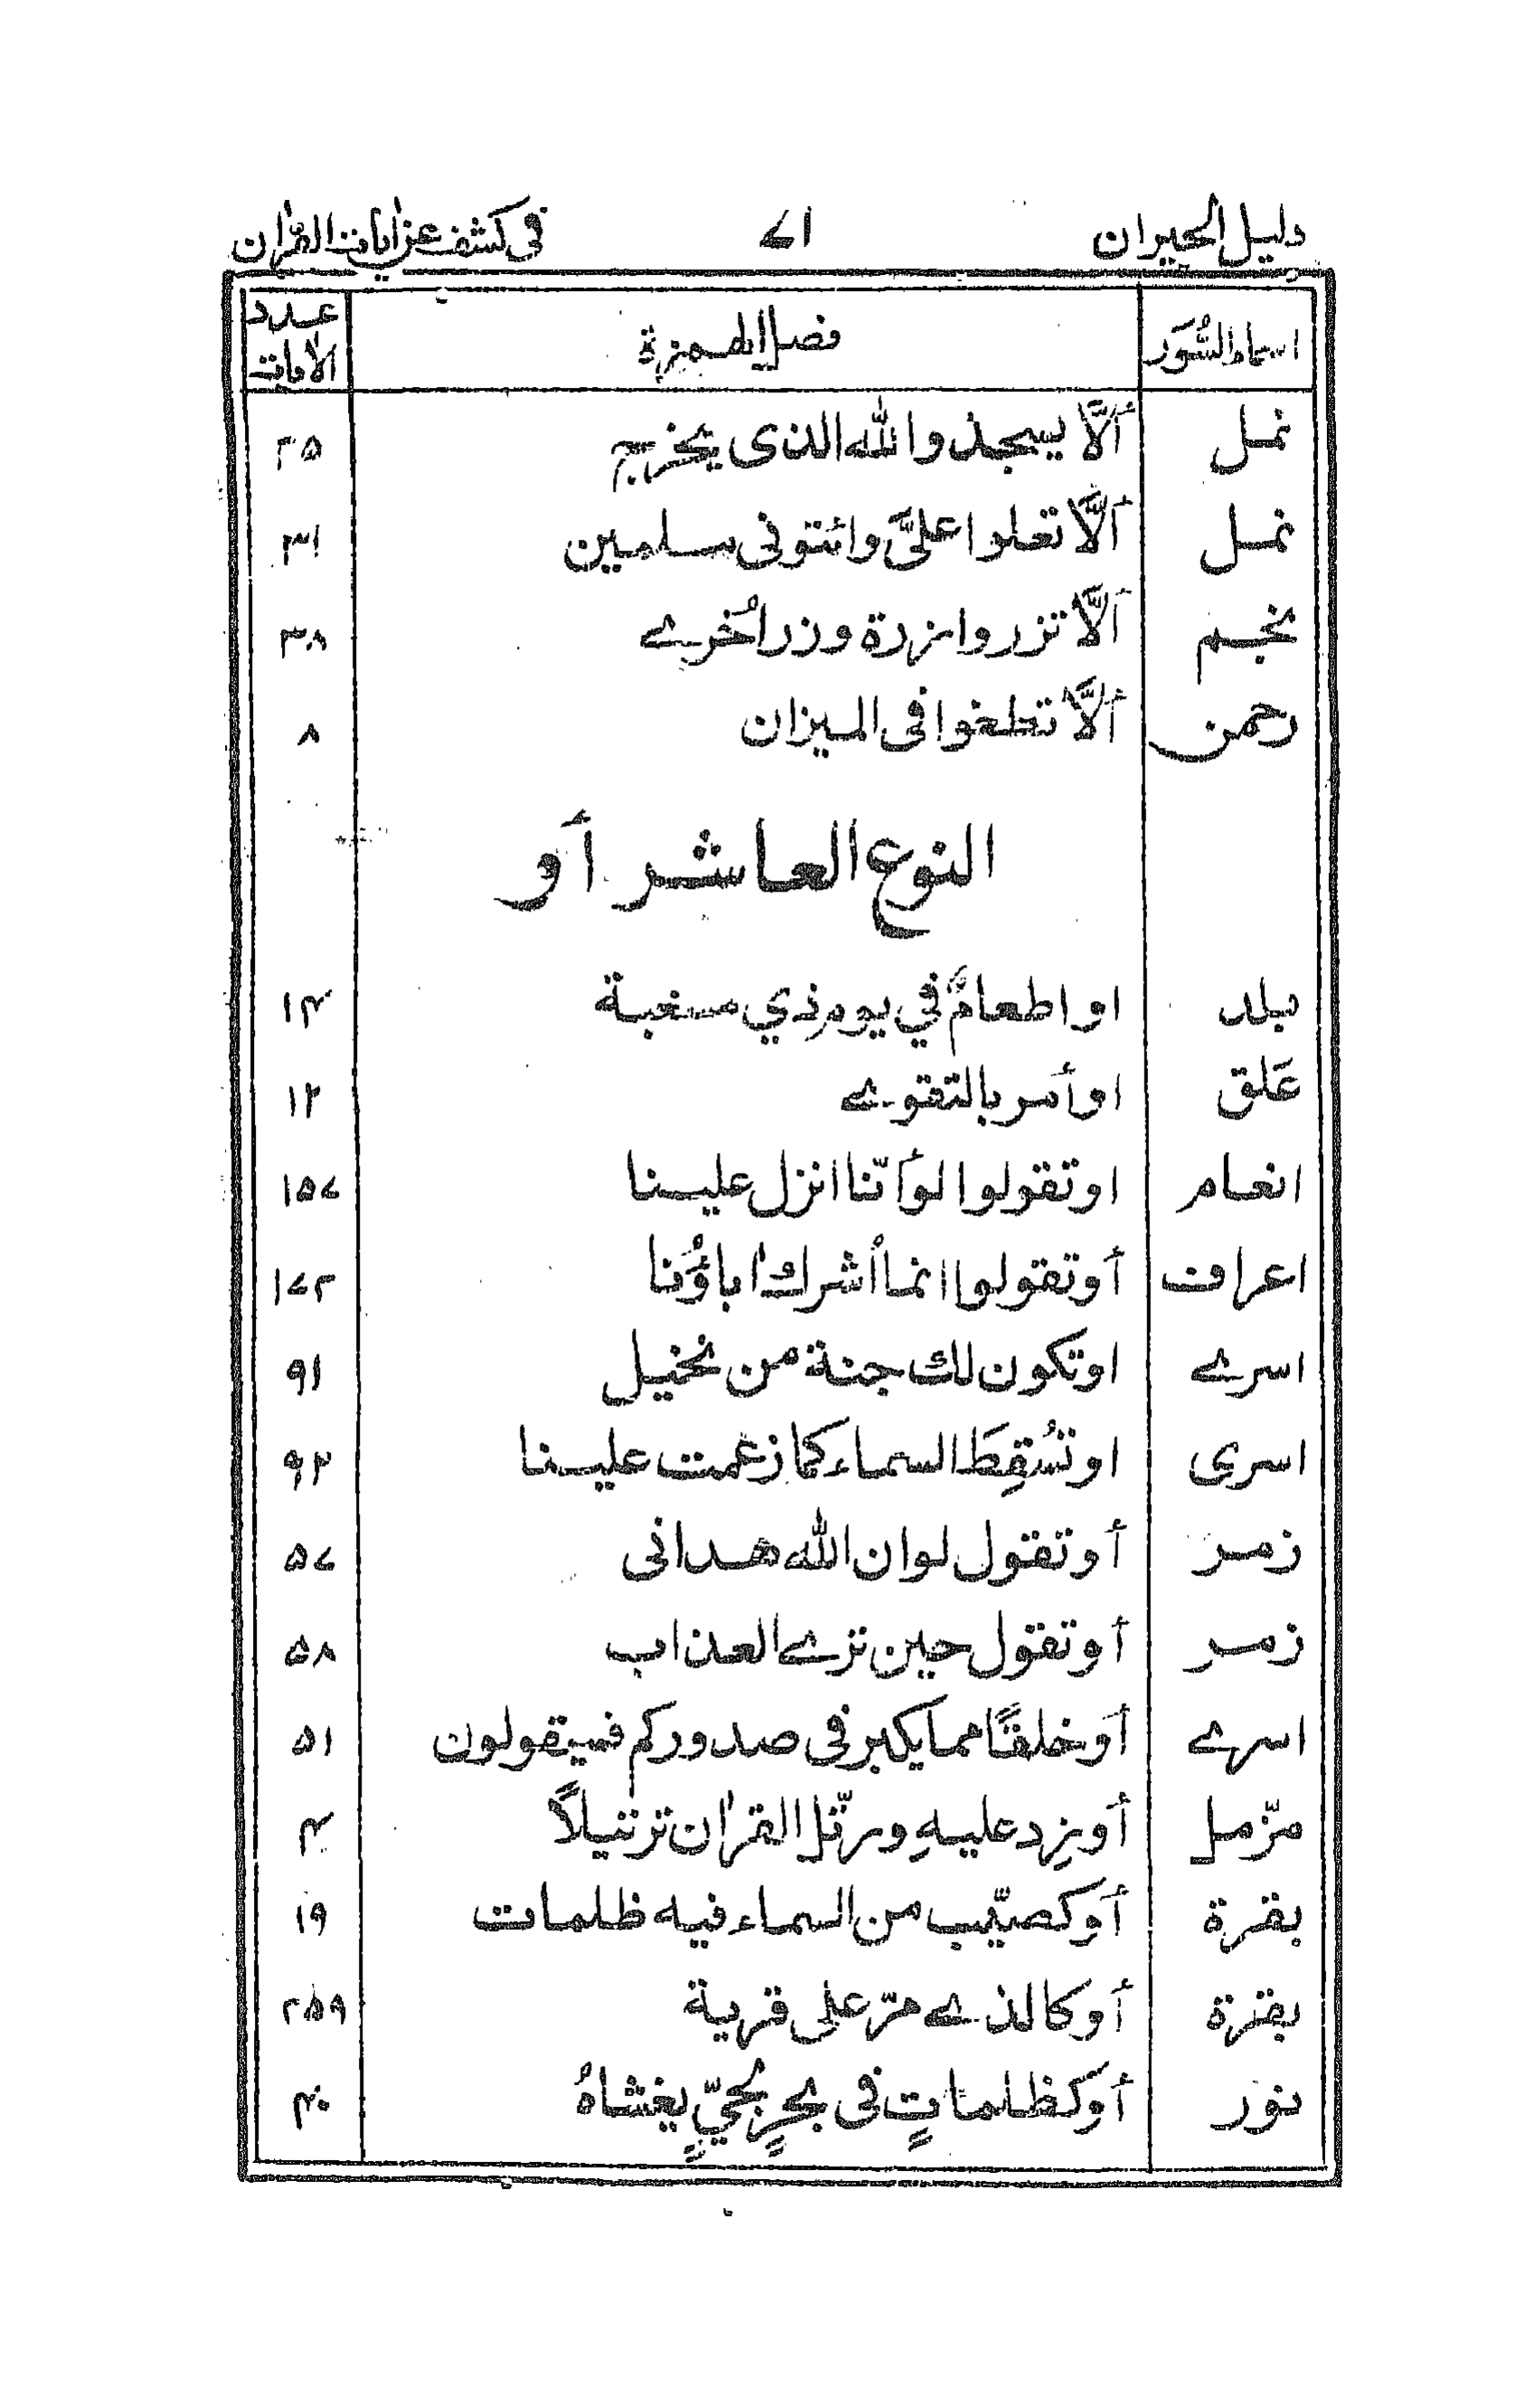 دليل الحيران ٧١ في كشف عن اٰيات القراٰن
اسماء السُّوَر فصل الهمزة عدد الاٰيات
نمل ألَّا يسجدوا لله الذى يخرج ٢٥
نمل ألَّا تعلوا علىَّ وائتونى مسلمين ٣١
نجم ألَّا تزر وازرة وزر اُخرے ٣٨
رحمن ألَّا تطغوا فى الميزان ٨
النوع العاشر أو
بلد او اطعامٌ في يوم ذي مسغبة ١٤
عَلق او أمر بالتقوے ١٢
انعام او تقولوا لو أنّنا انزل علينا ١٥٧
اعراف أو تقولوا انما أشرك اٰباؤُنا ١٧٢
اسرے او تكون لك جنة من نخيل ٩١
اسرى او تُسْقِطَ السماء كما زعمت علينا ٩٢
زمر أو تقول لو ان الله هدانى ٥٧
زمر أو تقول حين ترے العذاب ٥٨
اسرے أو خلقًا مما يكبر فى صدوركم فسيقولون ٥١
مزّمل أو زِد عليهِ ورتّل القراٰن ترتيلاً ٤
بقرة أو كصيّب من السماء فيه ظلمات ١٩
بقرة أو كالذے مرّ على قرية ٢٥٩
نور أو كظلماتٍ فى بحرٍ لجيّ يغشاهُ ٤٠